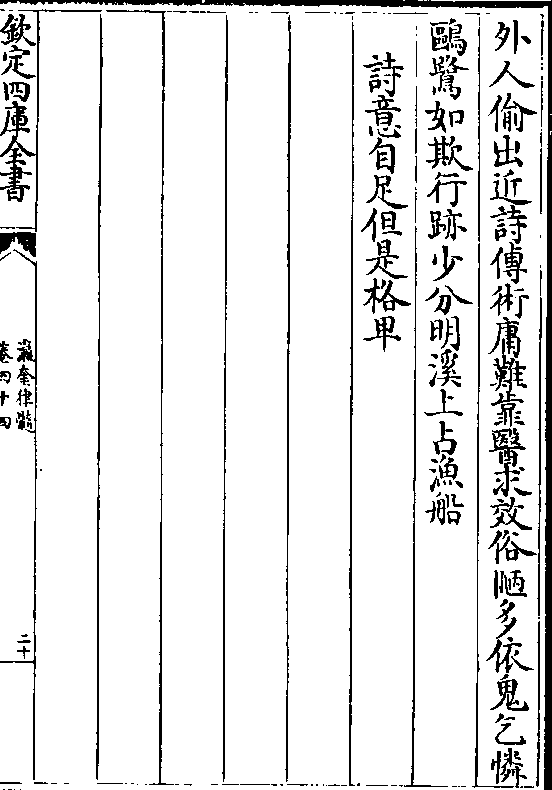 外人偷出近詩傳術庸難靠醫求效俗陋多依鬼乞憐
鷗鷺如欺行跡少分明溪上占漁船
詩意自足但是格卑
欽定四庫全書
瀛奎律髓
卷四十四
二十